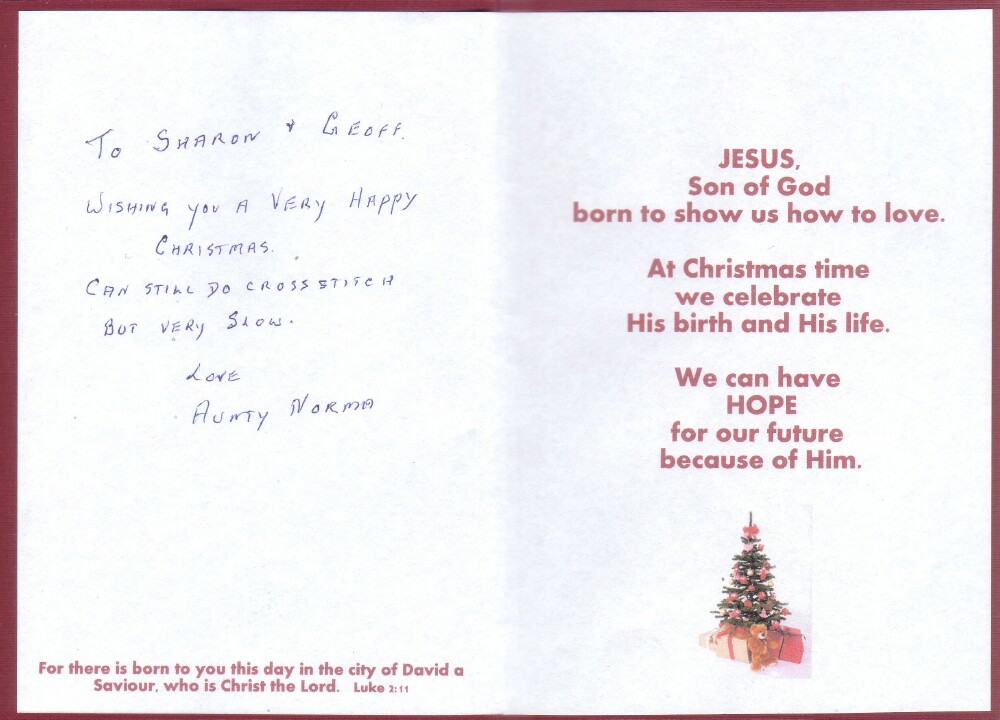 To SHARON & GEOFF.
WISHING YOU A VERY HAPPY
CHRISTMAS.
CAN STILL DO CROSS STITCH
BUT VERY SLOW.
LOVE
AUNTY NORMA
For there is born to you this day in the city of David a
Saviour, who is Christ the Lord. Luke 2:11
JESUS,
Son of God
born to show us how to love.
At Christmas time
we celebrate
His birth and His life.
We can have
HOPE
for our future
because of Him.